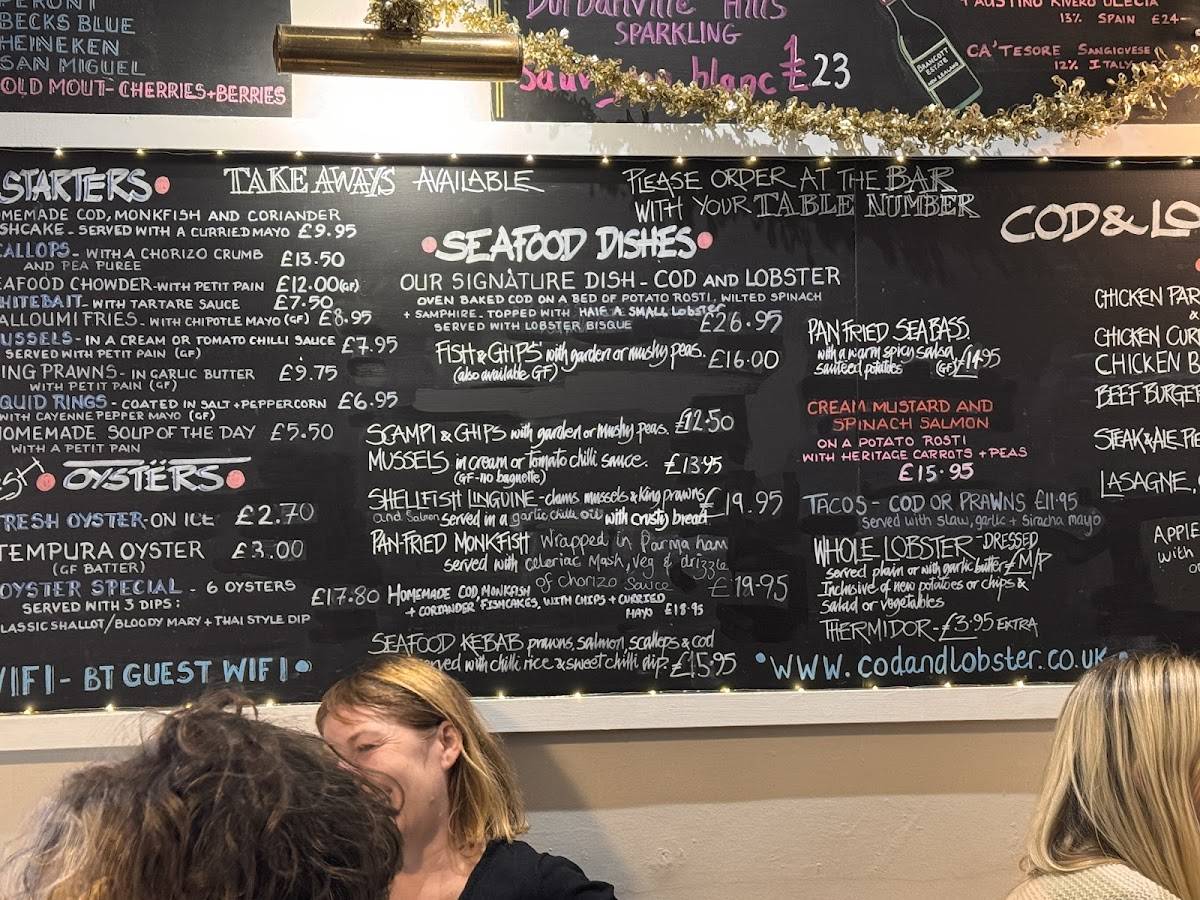 BECKS BLUE
HEINEKEN
SAN MIGUEL
OLD MOUT- CHERRIES+BERRIES
Durbanville Hills
SPARKLING
Sauvignon blanc £23
BRANCOTT
ESTATE
FAUSTINO RIVERO ULECIA
13% SPAIN £24-
CA'TESORE SANGIOVESE
12% ITALY
STARTERS
TAKE AWAYS AVAILABLE
PLEASE ORDER AT THE BAR
WITH YOUR TABLE NUMBER
OMEMADE COD, MONKFISH AND CORIANDER
SHCAKE - SERVED WITH A CURRIED MAYO £9.95
CALLOPS - WITH A CHORIZO CRUMB
AND PEA PUREE £13.50
EAFOOD CHOWDER - WITH PETIT PAIN £12.00 (GF)
HITEBAIT - WITH TARTARE SAUCE £7.50
ALLOUMI FRIES - WITH CHIPOTLE MAYO (GF) £8.95
USSELS - IN A CREAM OR TOMATO CHILLI SAUCE
SERVED WITH PETIT PAIN (GF) £7.95
ING PRAWNS - IN GARLIC BUTTER
WITH PETIT PAIN (GF) £9.75
QUID RINGS - COATED IN SALT+PEPPERCORN
WITH CAYENNE PEPPER MAYO (GF) £6.95
HOMEMADE SOUP OF THE DAY £5.50
WITH A PETIT PAIN
OYSTERS
FRESH OYSTER - ON ICE £2.70
TEMPURA OYSTER £3.00
(GF BATTER)
OYSTER SPECIAL - 6 OYSTERS
SERVED WITH 3 DIPS: £17.80
CLASSIC SHALLOT/BLOODY MARY + THAI STYLE DIP
WIFI - BT GUEST WIFI
SEAFOOD DISHES
OUR SIGNATURE DISH - COD AND LOBSTER
OVEN BAKED COD ON A BED OF POTATO ROSTI, WILTED SPINACH
+ SAMPHIRE - TOPPED WITH HALF A SMALL LOBSTER
SERVED WITH LOBSTER BISQUE £26.95
FISH & CHIPS with garden or mushy peas. £16.00
(also available GF)
SCAMPI & CHIPS with garden or mushy peas. £12.50
MUSSELS in cream or tomato chilli sauce. £13.95
(GF-no baguette)
SHELLFISH LINGUINE - clams mussels & king prawns
and Salmon served in a garlic chilli oil with crusty bread £19.95
PAN-FRIED MONKFISH Wrapped in Parma ham
served with celeriac Mash, veg & drizzle
of chorizo sauce £19.95
HOMEMADE COD, MONKFISH
+ CORIANDER FISHCAKES, WITH CHIPS + CURRIED
MAYO £18.95
SEAFOOD KEBAB prawns, salmon, scallops & cod
served with chilli rice & sweet chilli dip. £15.95
PAN FRIED SEABASS
with a warm spicy salsa,
sauteed potatoes (GF) £14.95
CREAM MUSTARD AND
SPINACH SALMON
ON A POTATO ROSTI
WITH HERITAGE CARROTS + PEAS
£15.95
TACOS - COD OR PRAWNS £11.95
served with slaw, garlic + Siracha mayo
WHOLE LOBSTER - DRESSED
served plain or with garlic butter £ M/P
Inclusive of new potatoes or chips &
Salad or vegetables
THERMIDOR - £3.95 EXTRA
WWW.codandlobster.co.uk
COD & LO
CHICKEN PAR
&
CHICKEN CUR
CHICKEN B
BEEF BURGER
STEAK & ALE PIE
LASAGNE,
APPLE
with